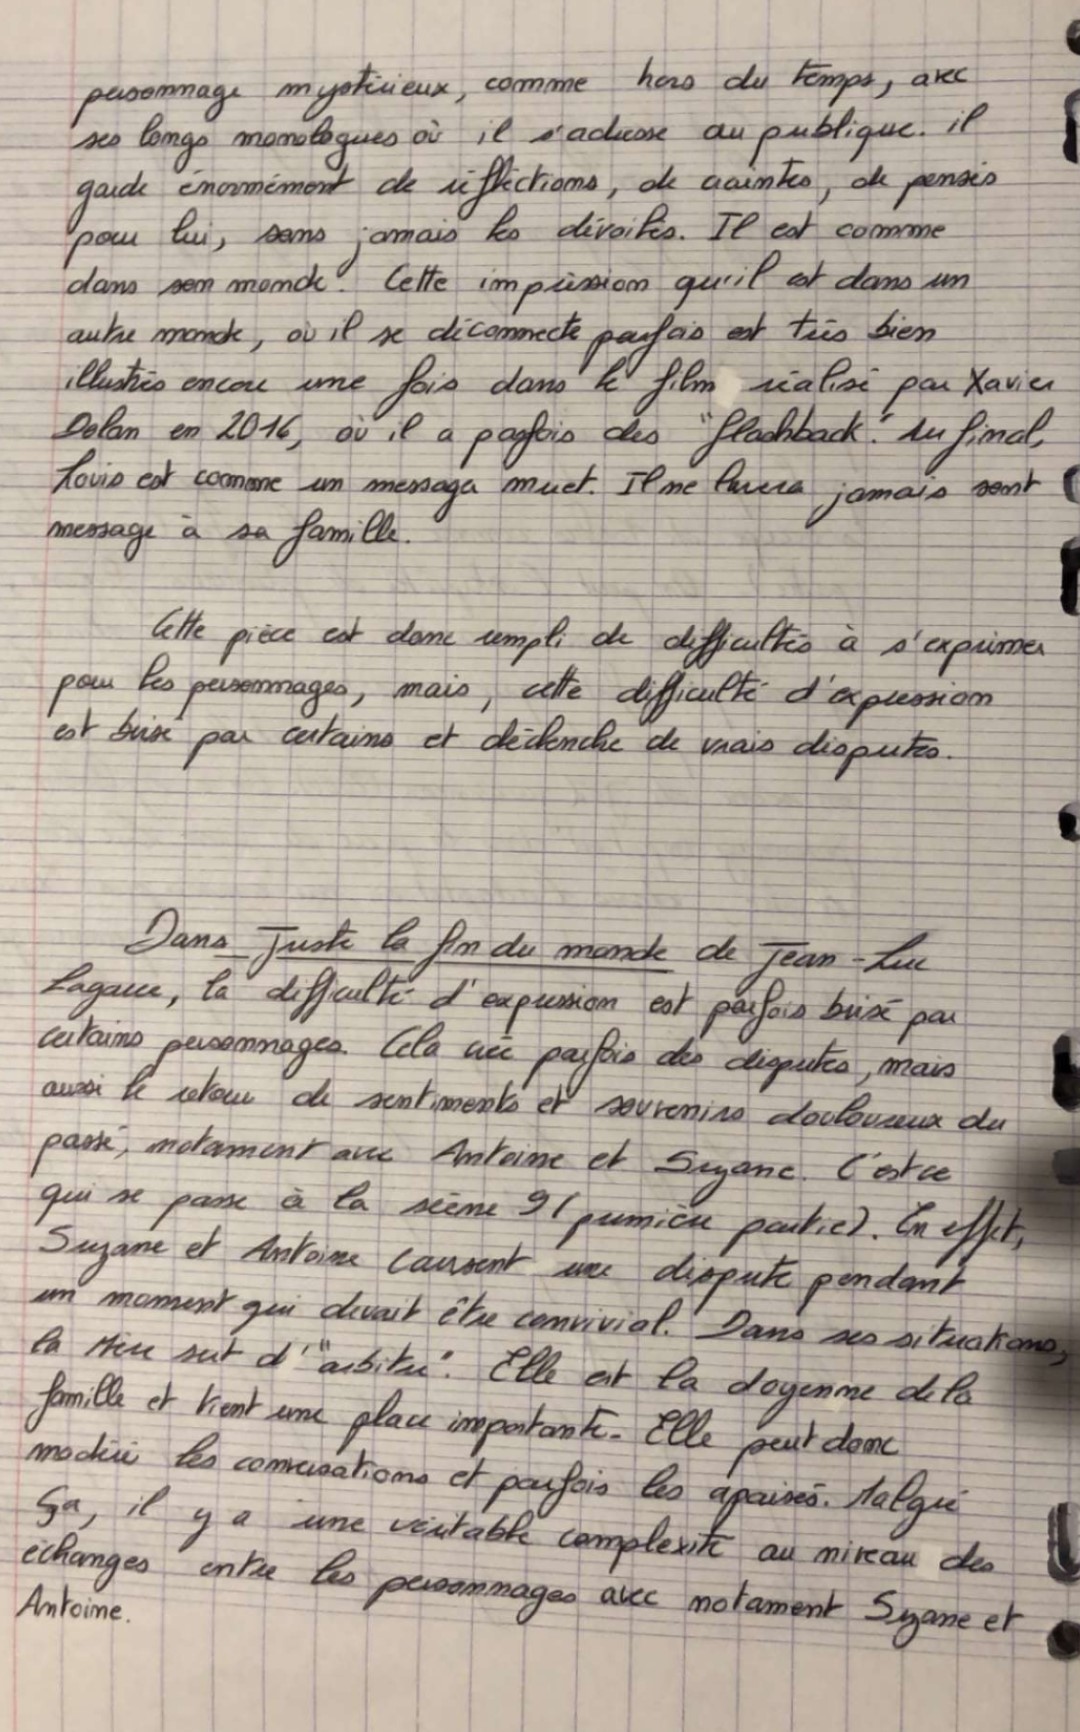 personnage mystérieux, comme hors du temps, avec
ses longs monologues où il s'adresse au publique. il
garde énormément de réflections, de craintes, de pensés
pour lui, sans jamais les dévoilés. Il est comme
dans son monde. Cette impression qu'il est dans un
autre monde, où il se déconnecte parfois est très bien
illustrés encore une fois dans le film réalisé par Xavier
Dolan en 2016, où il a parfois des "flashback". Au final,
Louis est comme un message muet. Il ne livrera jamais sont
message à sa famille.
Cette pièce est donc rempli de difficultés à s'exprimer
pour les personnages, mais, cette difficulté d'expression
est brisé par certains et déclenche de vrais disputes.
Dans Juste la fin du monde de Jean-Luc
Lagarce, la difficulté d'expression est parfois brisé par
certains personnages. Cela créé parfois des disputes, mais
aussi le retour de sentiments et souvenirs douloureux du
passé, notament avec Antoine et Suzane. C'est ce
qui se passe à la scène 9 (première partie). En effet,
Suzane et Antoine causent une dispute pendant
un moment qui devait être convivial. Dans ses situations,
la Mère sert d'"arbitre". Elle est la doyenne de la
famille et tient une place importante. Elle peut donc
modéré les conversations et parfois les apaisés. Malgré
ça, il y a une véritable complexité au niveau des
échanges entre les personnages avec notament Suzane et
Antoine.